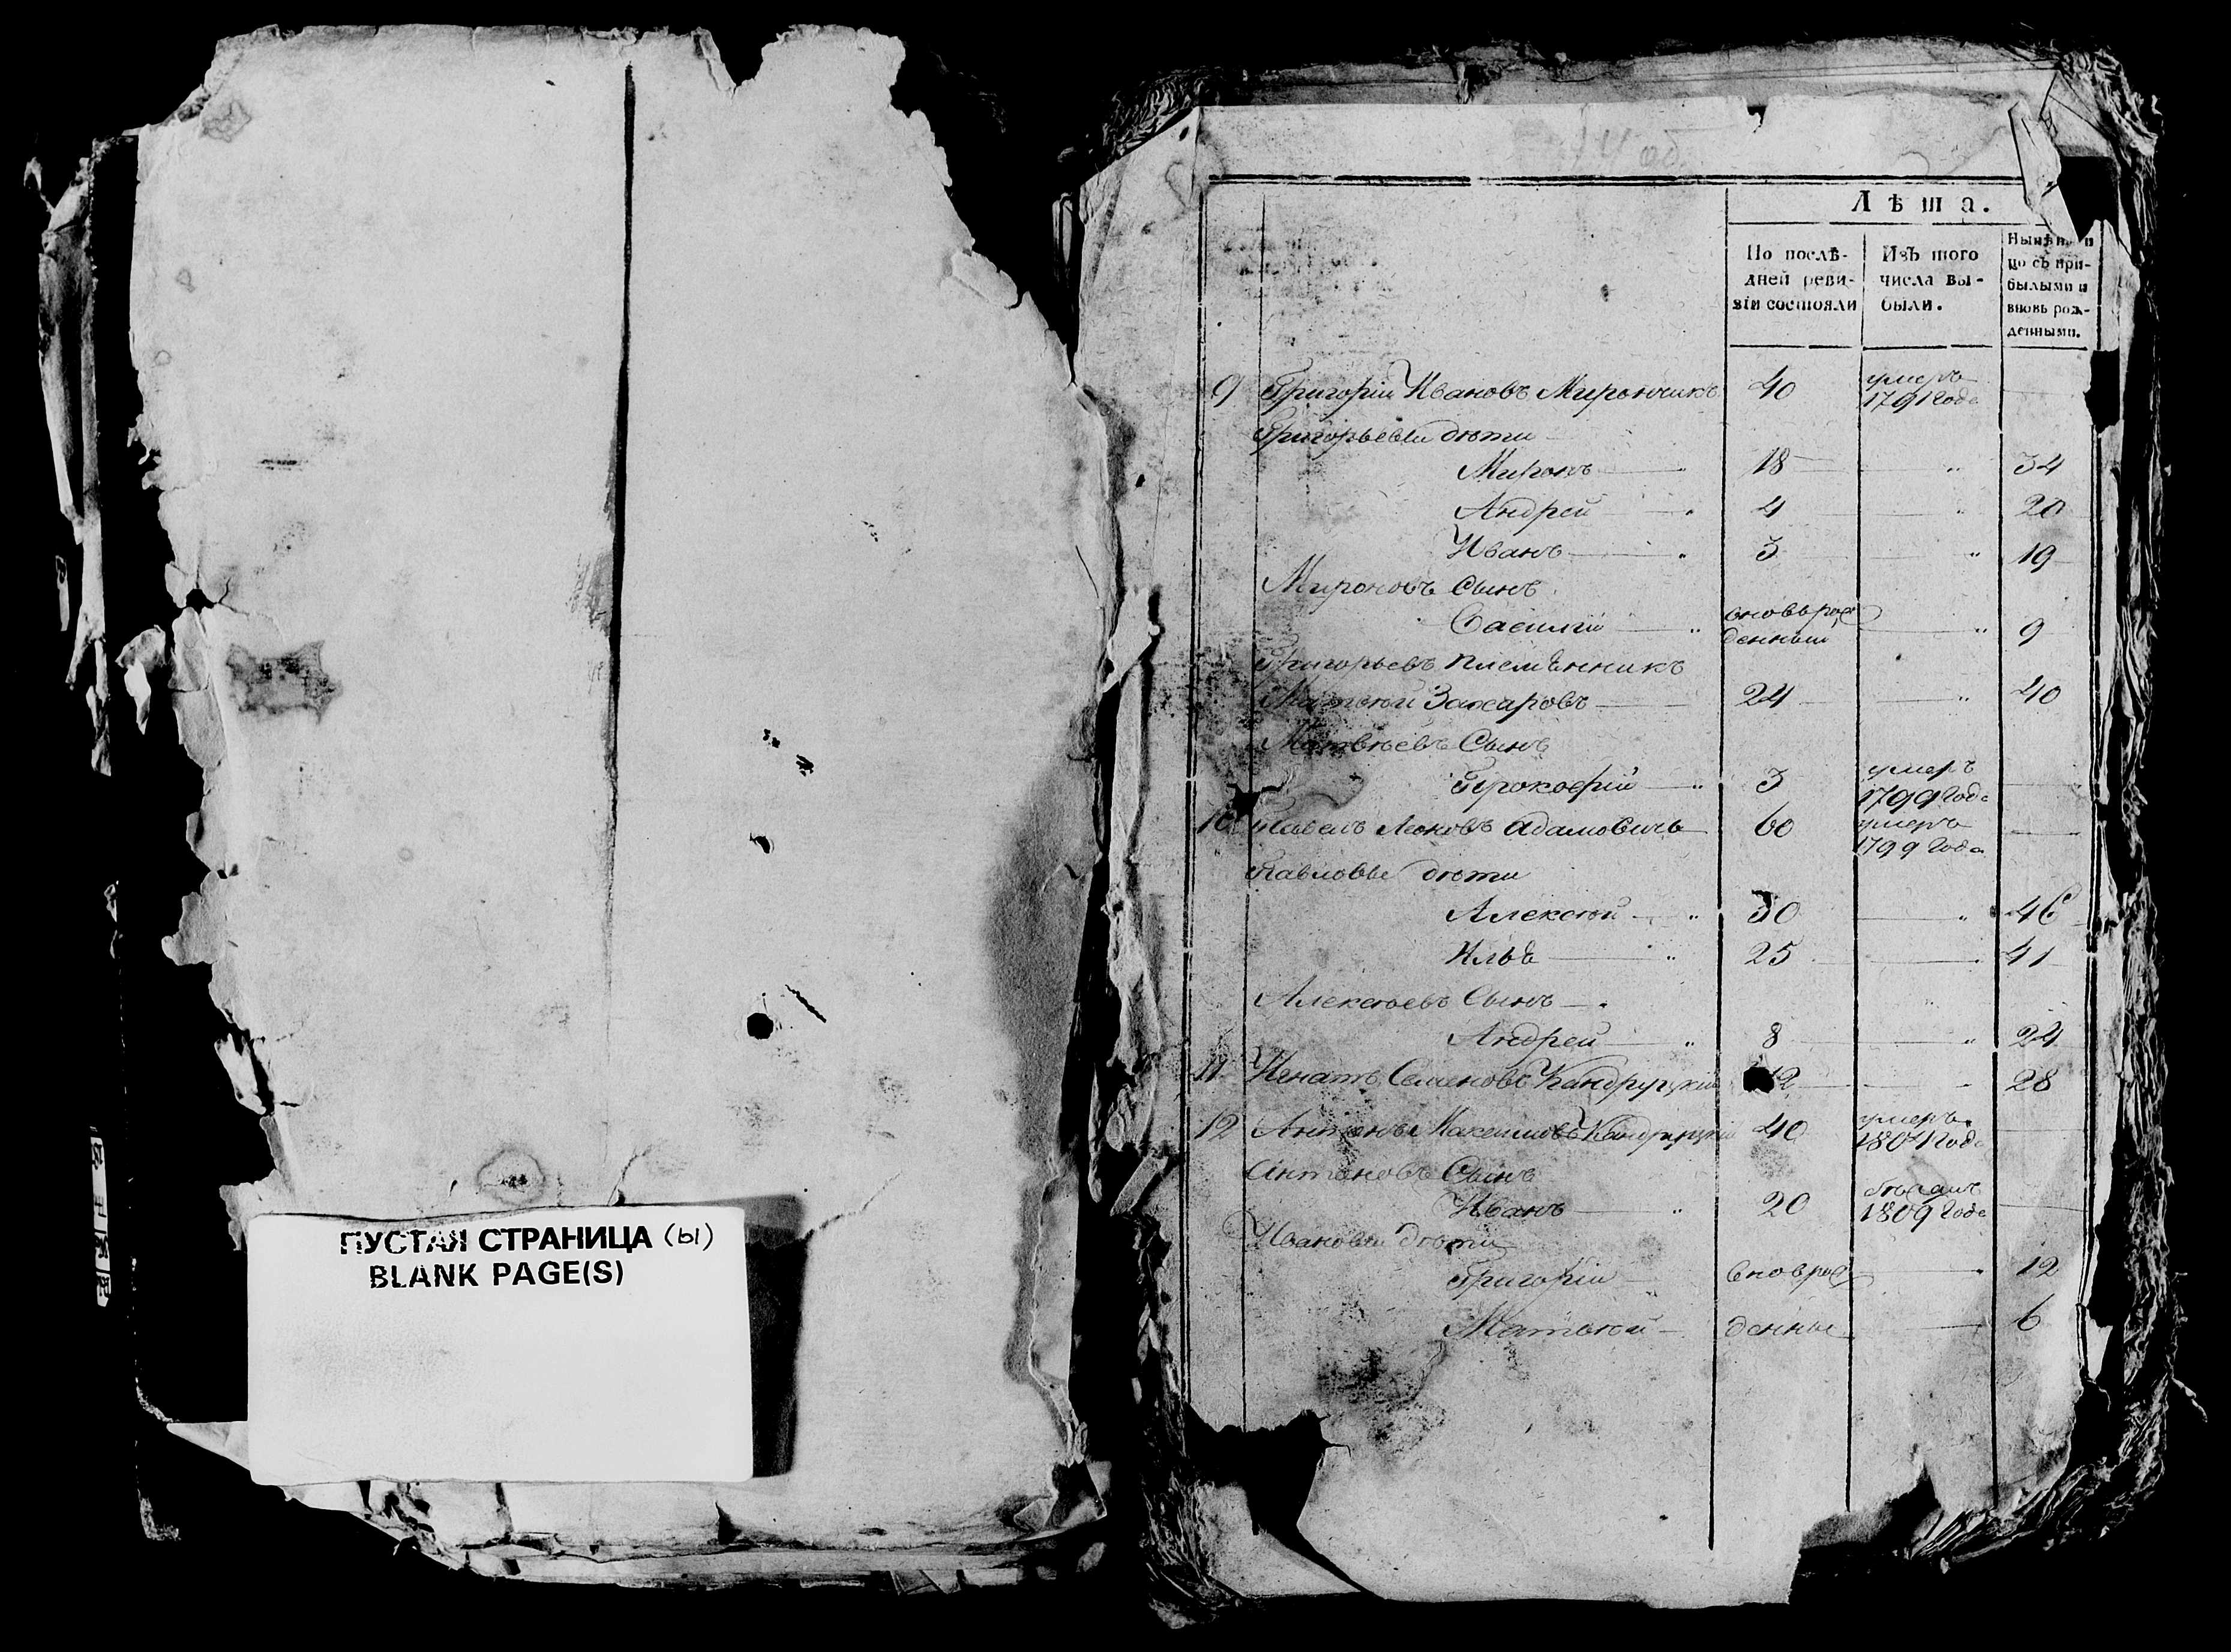 ПУСТАЯ СТРАНИЦА (ы)
BLANK PAGE(S)
Лѣта.
По послѣ-
дней реви-
зіи состояли
Изъ того
числа вы-
были.
по съ при-
былыми и
вновь рож-
денными.
9 Григорій Ивановъ Мирончикъ 40 умеръ 1791 года
Григорьевы дѣти
Миронъ 18 34
Андрей 4 20
Иванъ 3 19
Мироновъ Сынъ
Василій вновьрож денный 9
Григорьевъ племѣнникъ
Матвѣй Захаровъ 24 40
Матвѣевъ Сынъ
Прокофій 3 умеръ 1799 года
10 Павелъ Леоновъ Адамовичъ 60 умеръ 1799 года
Павловы дѣти
Алексѣй 30 46
Илья 25 41
Алексѣевъ Сынъ
Андрей 8 24
11 Игнатъ Семеновъ Кандруцкій 12 28
12 Антонъ Максимовъ Кандруцкій 40 умеръ 1804 года
Антоновъ Сынъ
Иванъ 20 1809 года
Ивановы дѣти
Григорій вноврож 12
Матвѣй денные 6